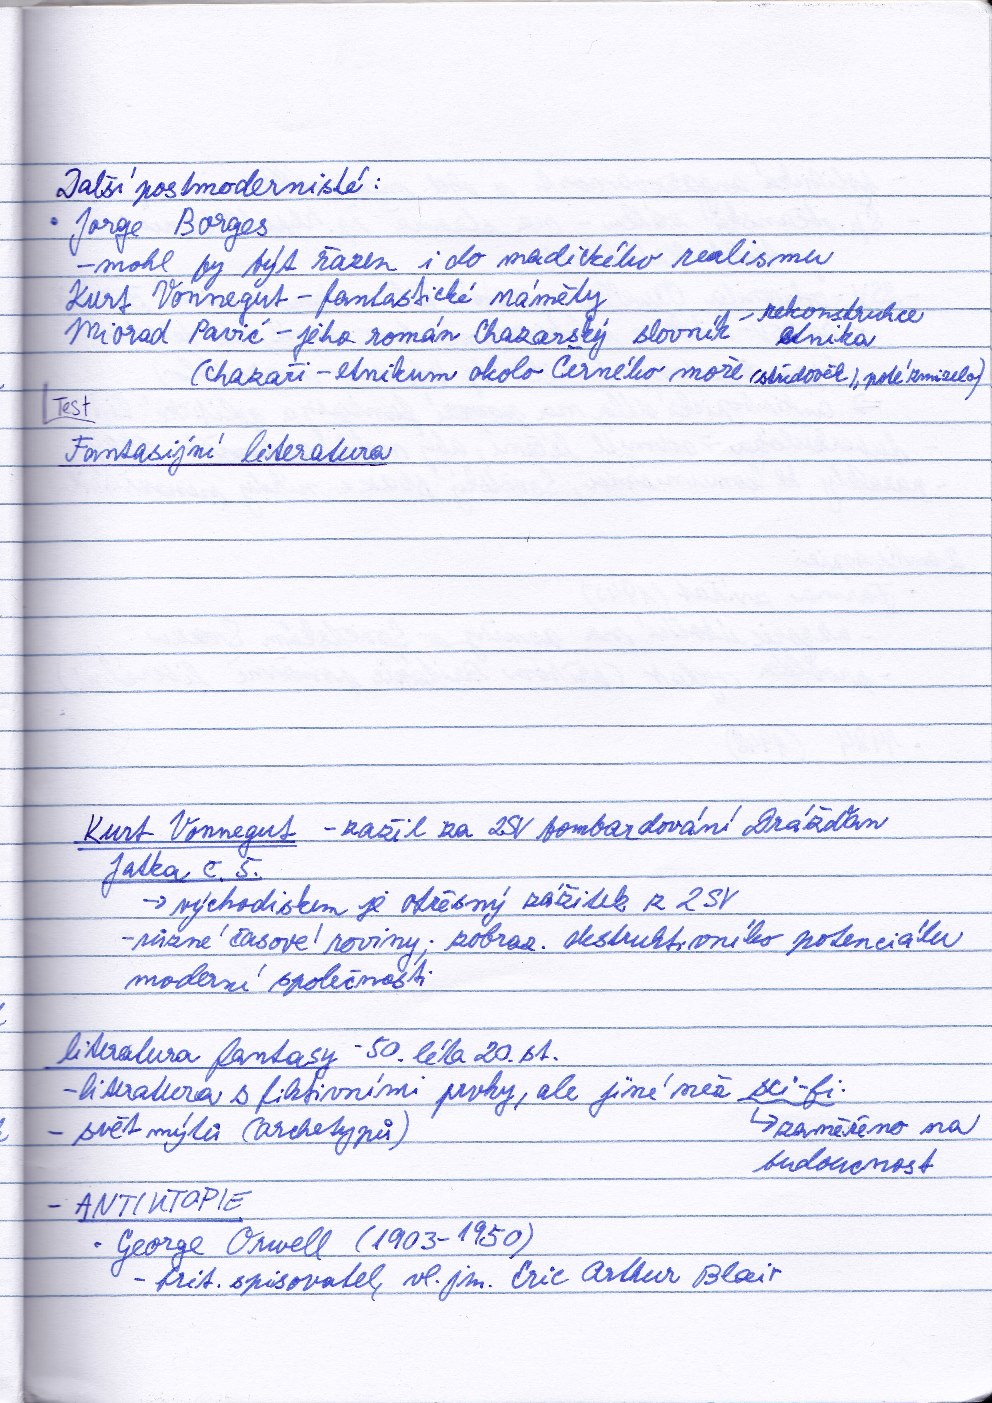 Další postmodernisté:
• Jorge Borges
- mohl by být řazen i do madického realismu
Kurt Vonnegut - fantastické náměty
Miorad Pavić - jeho román Chazarský slovník - rekonstrukce etnika
(Chazaři - etnikum okolo Černého moře (středověk), poté zmizelo)
Test
Fantasijní literatura
Kurt Vonnegut - zažil za 2SV bombardování Drážďan
Jatka č. 5.
→ východiskem je otřesný zážitek z 2SV
- různé časové roviny; zobraz. destruktivního potenciálu
moderní společnosti
literatura fantasy - 50. léta 20. st.
- literatura s fiktivními prvky, ale jiné než sci-fi.
- svět mýtů (archetypů)
↳ zaměřeno na
budoucnost
- ANTIUTOPIE
• George Orwell (1903-1950)
- brit. spisovatel, vl. jm. Eric Arthur Blair